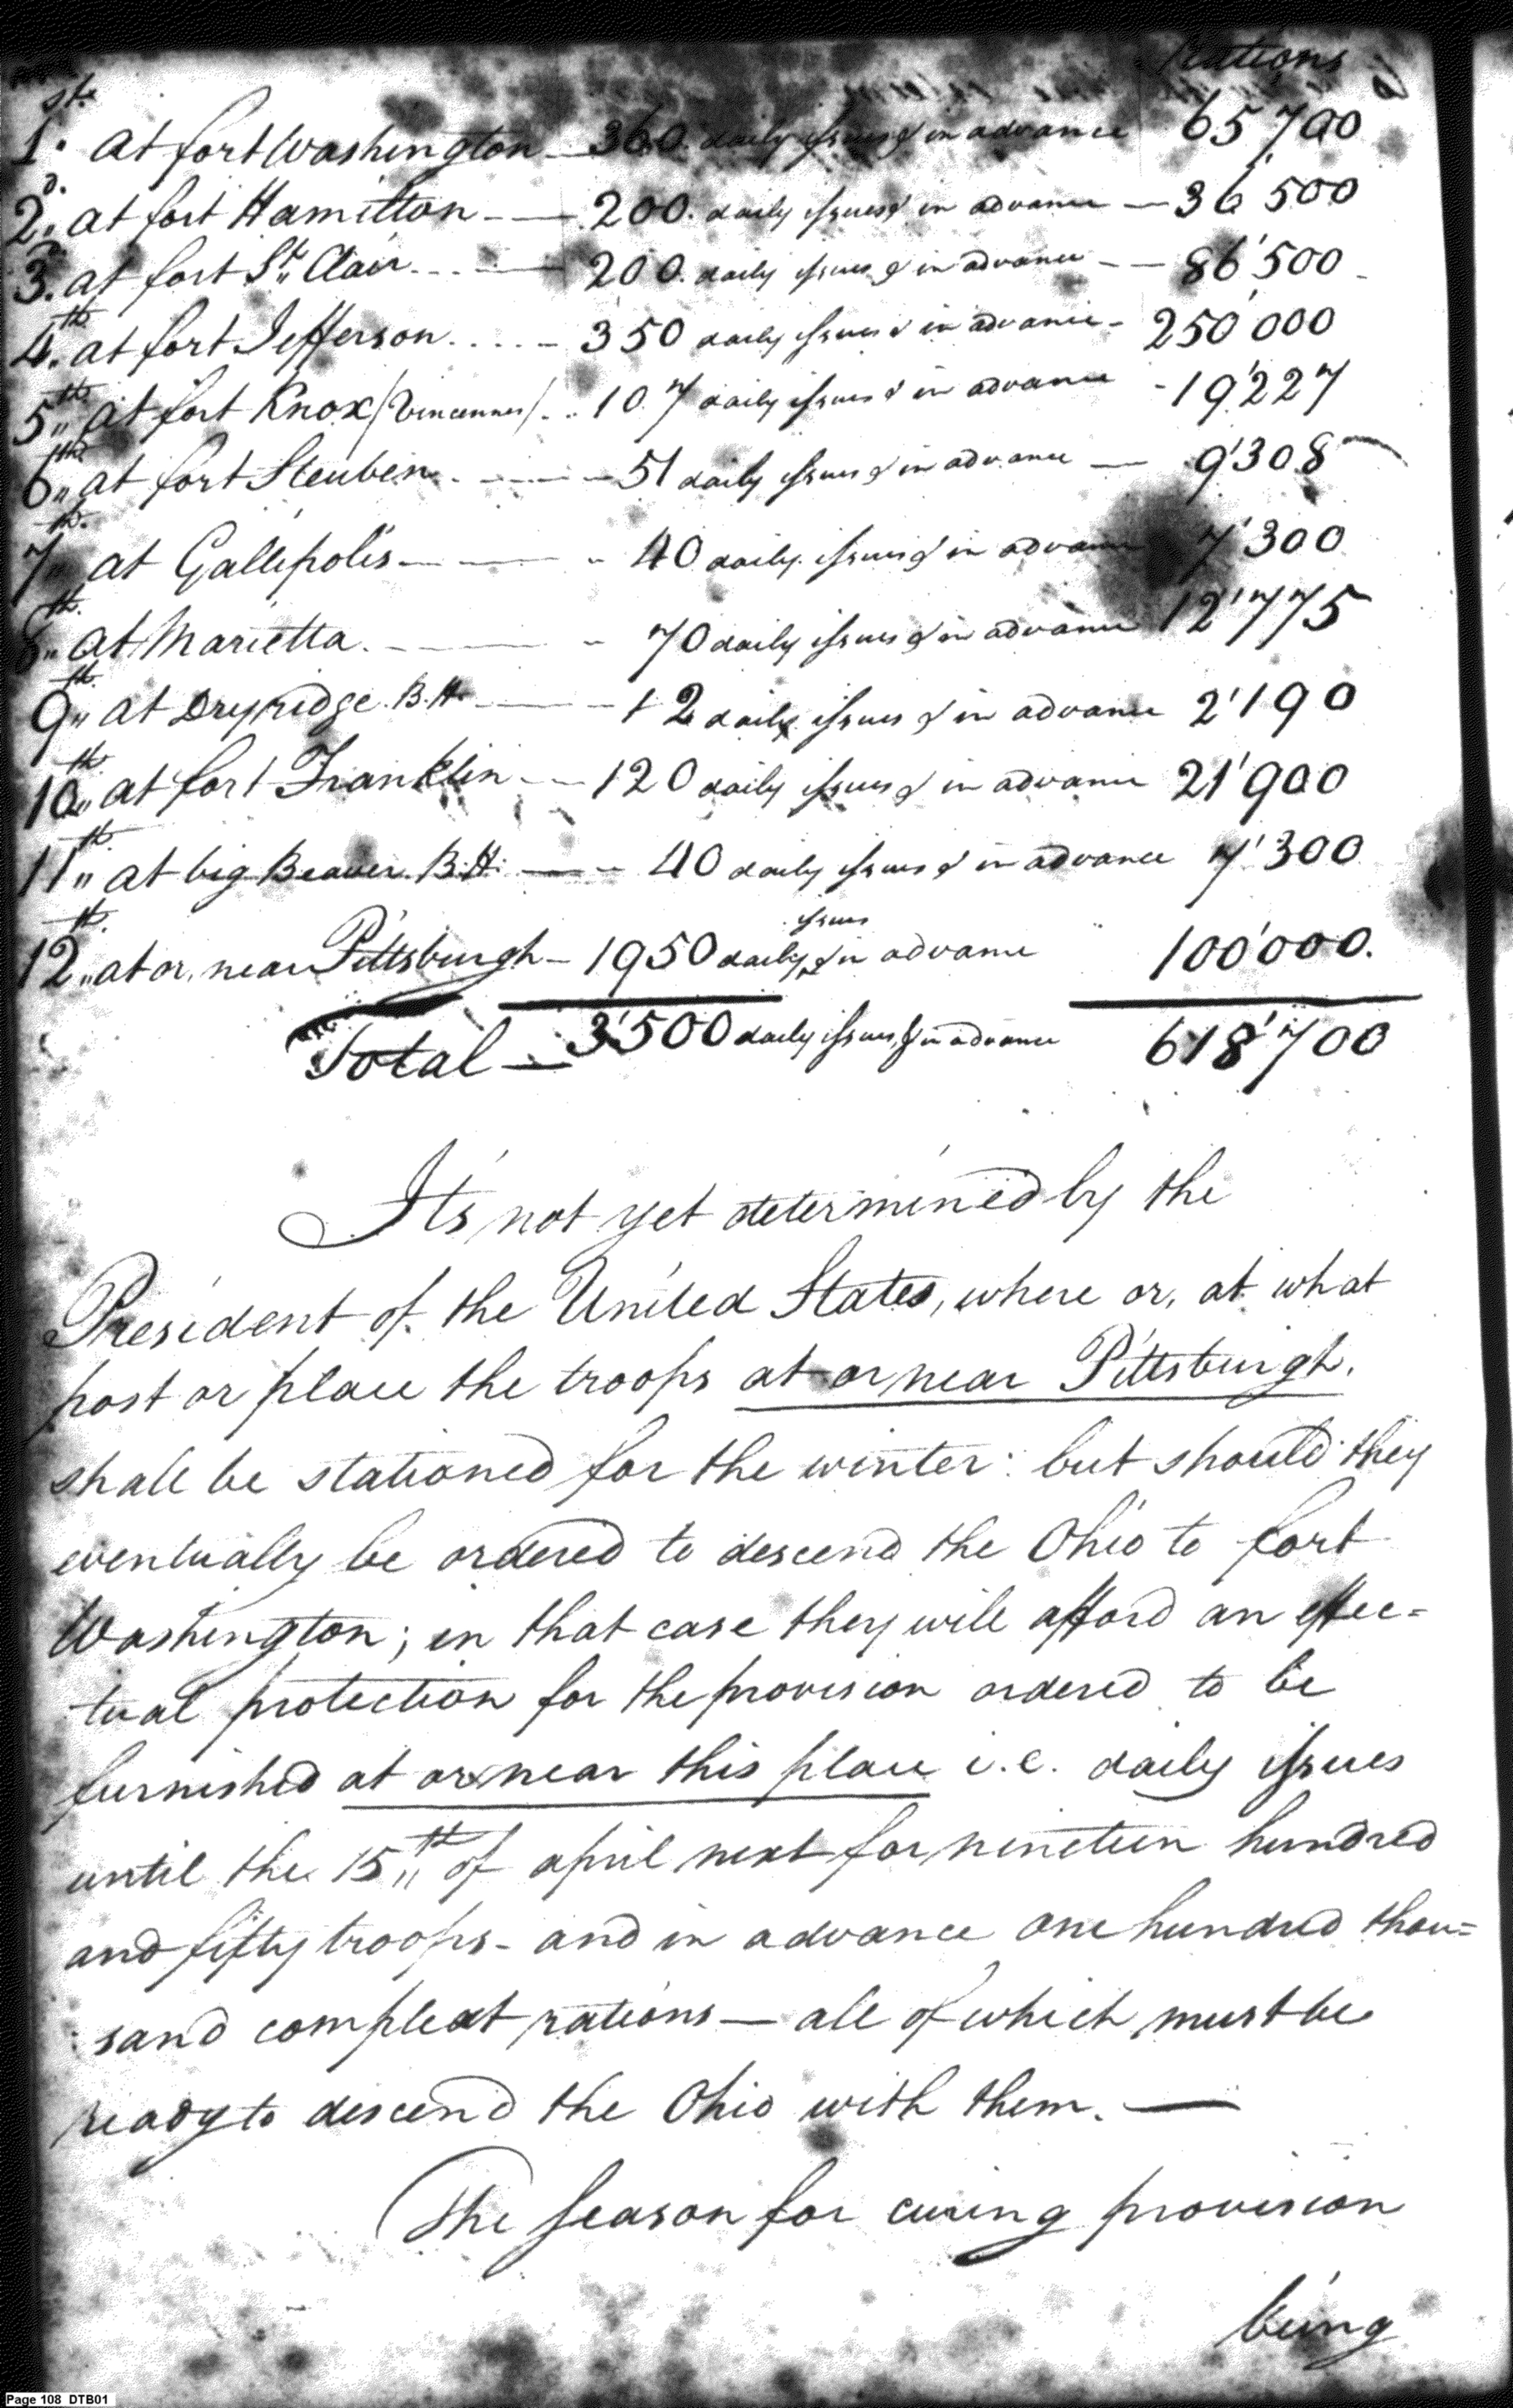 Rations
1st. at fort Washington — 360. daily issues & in advance 65'700
2d. at fort Hamilton - — 200. daily issues & in advance — 36'500
3d. at fort St. Clair. - - — 200. daily issues & in advance - — 86'500
4th. at fort Jefferson. . . . - 350 daily issues & in advance - 250'000
5th. at fort Knox /Vincennes/ . . 107 daily issues & in advance - 19'227
6th. at fort Steuben. - — - 51 daily issues & in advance — 9'308
7th. at Gallipolis - — - 40 daily issues & in advance 7'300
8th. at Marietta. - — - 70 daily issues & in advance 12'775
9th. at Dryridge. B.H. - — - 12 daily issues & in advance 2'190
10th. at fort Franklin - — 120 daily issues & in advance 21'900
11th. at big Beaver. B.H: — - 40 daily issues & in advance 7'300
12th. at or, near Pittsburgh - 1950 daily issues & in advance 100'000.
Total — 3'500 daily issues, & in advance 618'700
It's not yet determined by the
President of the United States, where or, at what
post or place the troops at or near Pittsburgh.
shall be stationed for the winter: but should they
eventually be ordered to descend the Ohio to fort
Washington; in that case they will afford an effec=
tual protection for the provision ordered to be
furnished at or near this place i.e. daily issues
until the 15th of april next for nineteen hundred
and fifty troops - and in advance one hundred thou=
sand compleat rations — all of which must be
ready to descend the Ohio with them. —
The season for curing provision
being
Page 108 DTB01